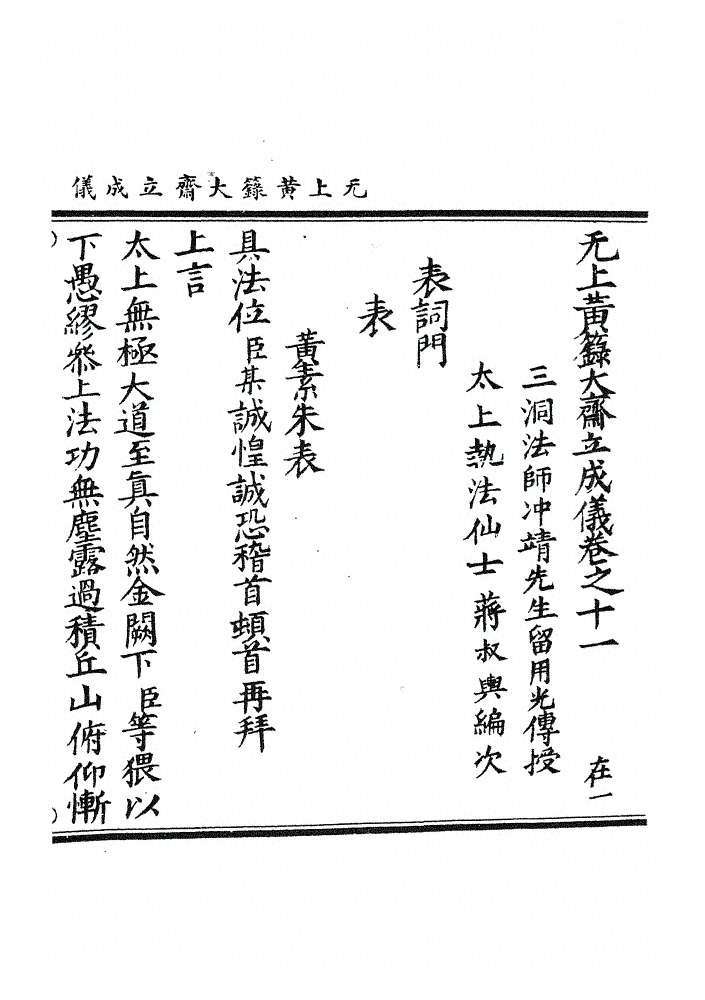 无上黄籙大齋立成儀
无上黃籙大齋立成儀卷之十一 在一
三洞法師冲靖先生留用光傳授
太上執法仙士蔣叔輿編次
表詞門
表
黃素朱表
具法位臣某誠惶誠恐稽首頓首再拜
上言
太上無極大道至眞自然金闕下臣等猥以
下愚繆叅上法功無塵露過積丘山俯仰慚